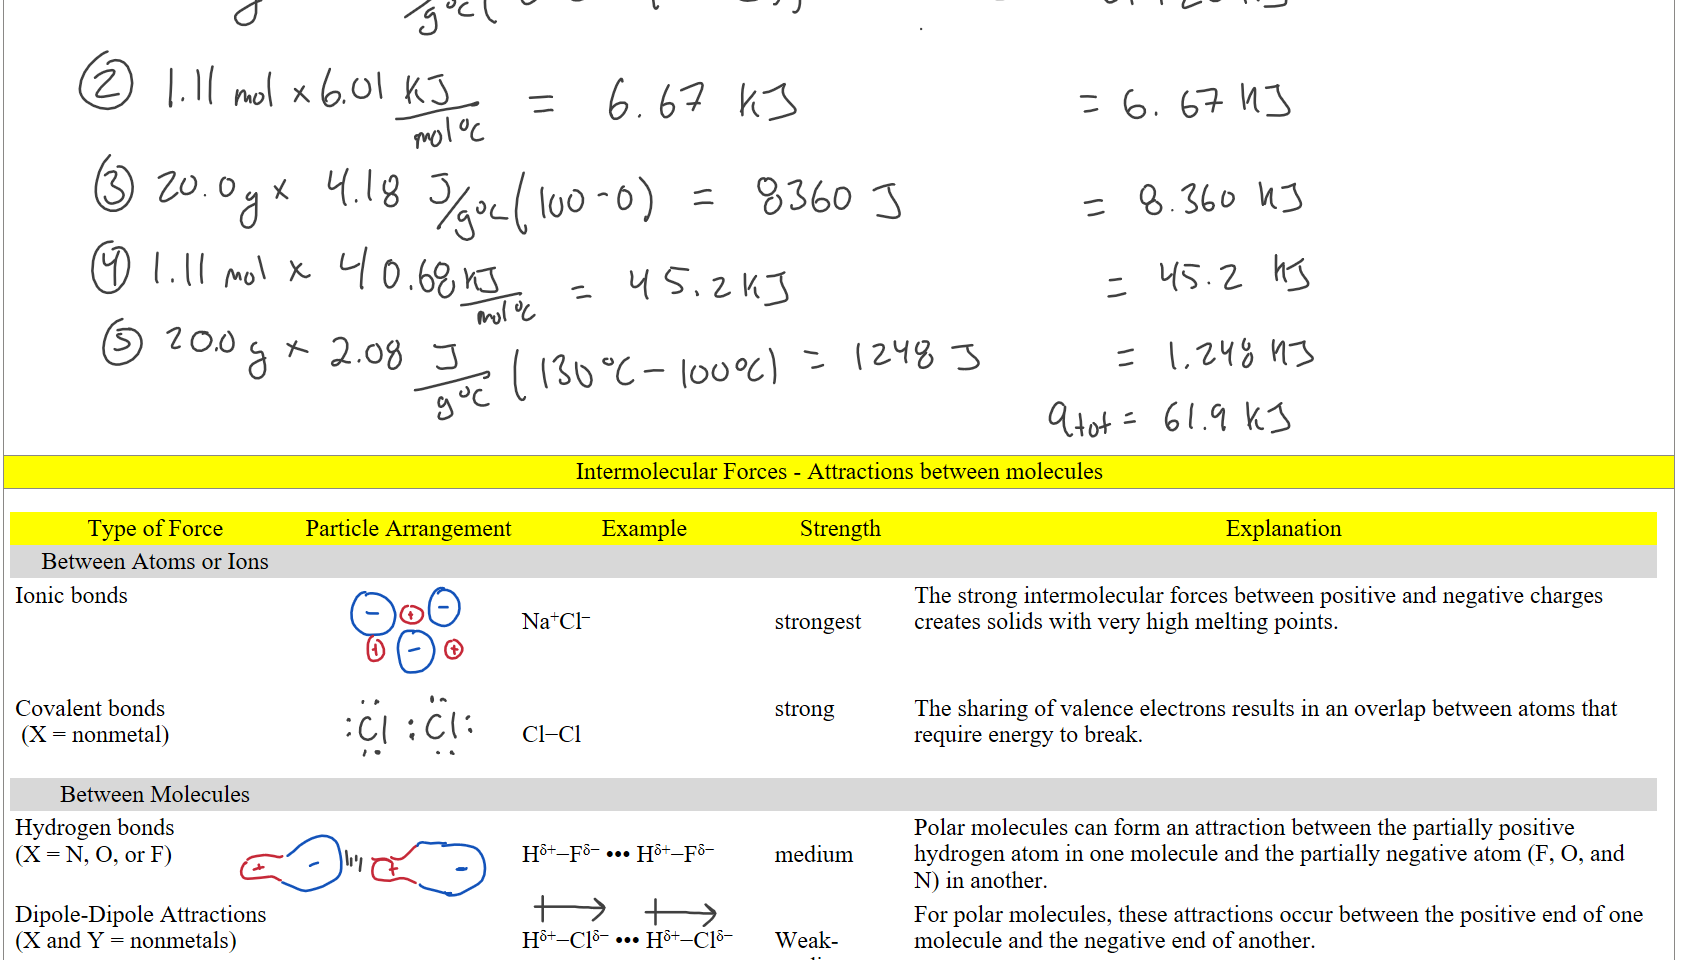 g /g°C(
② 1.11 mol × 6.01 KJ/mol°C = 6.67 KJ = 6.67 KJ
③ 20.0g × 4.18 J/g°C (100-0) = 8360 J = 8.360 KJ
④ 1.11 mol × 40.68 KJ/mol°C = 45.2 KJ = 45.2 KJ
⑤ 20.0 g × 2.08 J/g°C (130°C - 100°C) = 1248 J = 1.248 KJ
qtot = 61.9 KJ
Intermolecular Forces - Attractions between molecules
Type of Force Particle Arrangement Example Strength Explanation
Between Atoms or Ions
Ionic bonds The strong intermolecular forces between positive and negative charges
− + −
Na⁺Cl⁻ strongest creates solids with very high melting points.
+ − +
Covalent bonds strong The sharing of valence electrons results in an overlap between atoms that
(X = nonmetal) :Cl:Cl: Cl−Cl require energy to break.
Between Molecules
Hydrogen bonds Polar molecules can form an attraction between the partially positive
(X = N, O, or F) + − + − Hᵟ⁺−Fᵟ⁻ ••• Hᵟ⁺−Fᵟ⁻ medium hydrogen atom in one molecule and the partially negative atom (F, O, and
N) in another.
Dipole-Dipole Attractions For polar molecules, these attractions occur between the positive end of one
(X and Y = nonmetals) Hᵟ⁺−Clᵟ⁻ ••• Hᵟ⁺−Clᵟ⁻ Weak- molecule and the negative end of another.